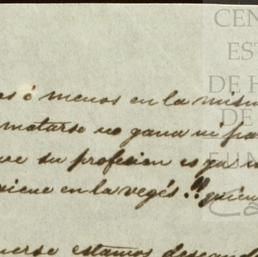 CEN
ES
DE H
DE
ó menos en la mism
matarse no gana ni pa
su profesion es ga
viene en la vegés!! quien
estamos deseand